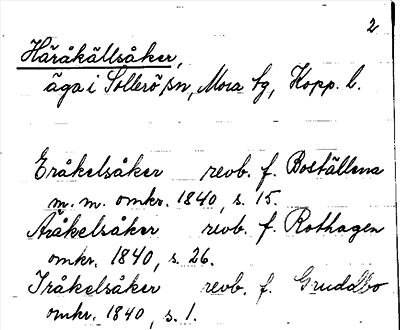 2
Häråkällsåker,
äga i Sollerö sn, Mora tg, Kopp. l.
Eråkelsåker revb. f. Boställena
m. m. omkr. 1840, s. 15.
Aråkelsåker revb. f. Rothagen
omkr. 1840, s. 26.
Iråkelsåker revb. f. Gruddbo
omkr. 1840, s. 1.